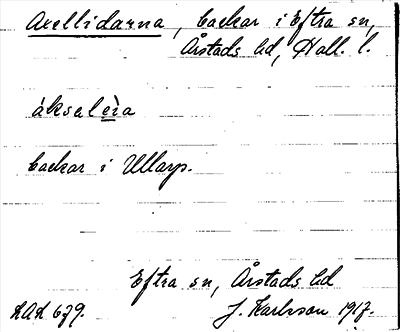 Axellidarna, backar i Eftra sn,
Årstads hd, Hall. l.
àksalèìa
backar i Ullarp.
Eftra sn, Årstads hd
LAL 679. J. Karlsson 1917.